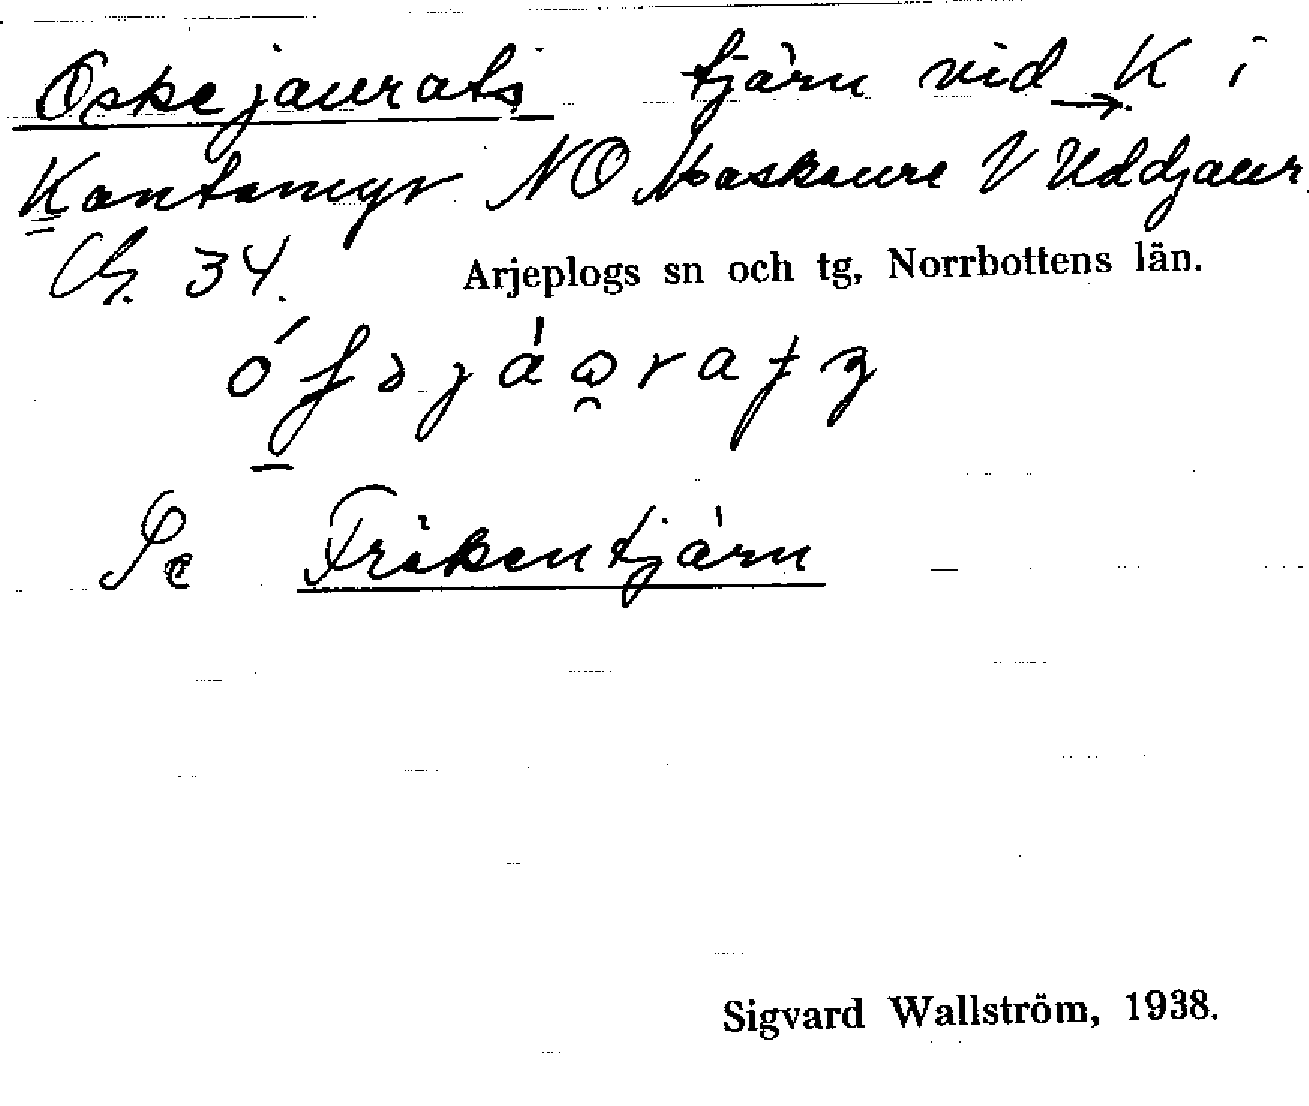 Oskejaurats tjärn vid → K i
Kantamyr NO Maskaure V Uddjaur
34. Arjeplogs sn och tg, Norrbottens län.
Se Fräkentjärn
Sigvard Wallström, 1938.